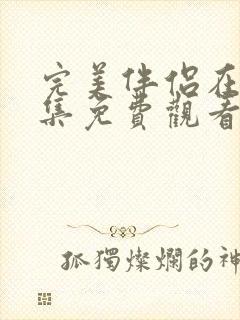 完美伴侶在
集免費觀看
孤獨燦爛的神